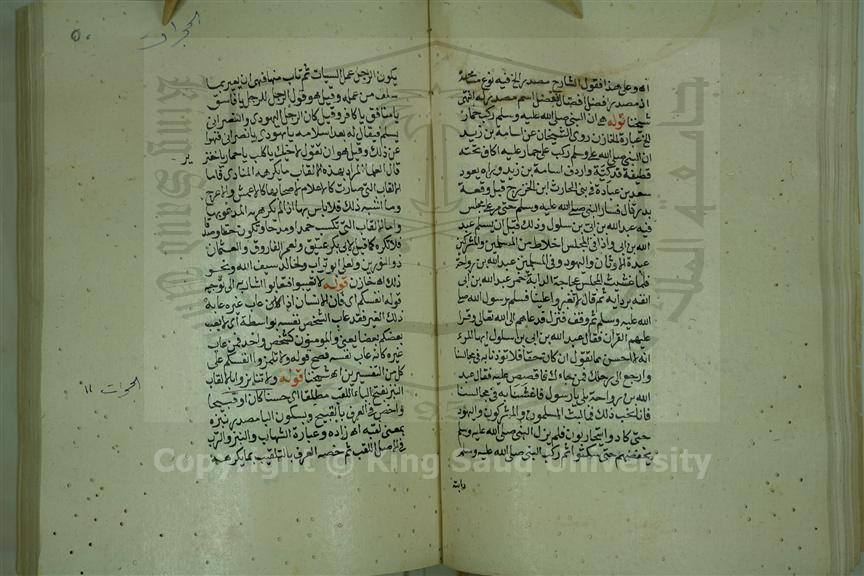 اه وعلى هذا فقول الشارح مصدر الخ فيه نوع مسامحة
اذ مصدر افضل افضال لافضل اسم مصدر له انتهى
شيخنا قوله هو ان النبي صلى الله عليه وسلم ركب حمارا
الخ عبارة الخازن روى الشيخان عن اسامة بن زيد
ان النبي صلى الله عليه وسلم ركب على حمار عليه اكاف تحته
قطيفة فدكية واردف اسامة بن زيد وراه يعود
سعد بن عبادة في بني الحارث ابن الخزرج قبل وقعة
بدر قال فسار النبي صلى الله عليه وسلم حتى مر على مجلس
فيه عبد الله بن ابي بن سلول وذلك قبل ان يسلم عبد
الله بن ابي واذا في المجلس اخلاط من المسلمين والمشركين
عبدة الاوثان واليهود وفي المسلمين عبد الله بن رواحة
فلما غشيت المجلس عجاجة الدابة خمر عبد الله بن ابي
انفه بردايه ثم قال لا تغبروا علينا فسلم رسول الله صلى
الله عليه وسلم ثم وقف فنزل فدعاهم الى الله تعالى وقرا
عليهم القران فقال عبد الله بن ابي بن سلول ايها المرء
انه لا احسن مما تقول ان كان حقا فلا توذنا به في مجالسنا
وارجع الى رحلك فمن جاءك فاقصص عليه فقال عبد
الله بن رواحة بلى يا رسول الله فاغشنا به في مجالسنا
فانا نحب ذلك فاستب المسلمون والمشركون واليهود
حتى كادوا يتحاربون فلم يزل النبي صلى الله عليه وسلم
يخفضهم حتى سكتوا ثم ركب النبي صلى الله عليه وسلم
دابته
الحجرات
٥٠
يكون الرجل عمل السيات ثم تاب منها فنهي ان يعير بما
سلف من عمله وقيل هو قول الرجل للرجل يا فاسق
يا منافق يا كافر وقيل كان الرجل اليهودي والنصراني
يسلم فيقال له بعد اسلامه يا يهودي يا نصراني فنهوا
عن ذلك وقيل هو ان تقول لاخيك يا كلب يا حمار يا خنز
ير
قال العلما المراد بهذه الالقاب ما يكرهه المنادى فاما
الالقاب التي صارت كالاعلام لاصحابها كالاعمش والاعرج
وما اشبه ذلك فلا باس بها اذا لم يكرهه المدعو بها
واما الالقاب التي تكسب حمدا ومدحا وتكون حقا وصدقا
فلا تكره كما قيل لابي بكر عتيق ولعمر الفاروق ولعثمان
ذو النورين ولعلي ابو تراب ولخالد سيف الله ونحو
ذلك اه خازن قوله لا تعيبوا فتعابوا اشار به الى توجيه
قوله انفسكم اي فان الانسان اذا عاب غيره عابه
ذلك الغير فقد عاب الشخص نفسه بواسطة اي لا يعب
بعضكم بعضا يعني والمومنون كشخص واحد فمن عاب
غيره كانه عاب نفسه فصح قوله ولا تلمزوا انفسكم على
كل من التفسيرين اه شيخنا قوله ولا تنابزوا بالالقاب
النبز بفتح الباء اللقب مطلقا اي حسنا كان او قبيحا
واختص في العرف بالقبيح وبسكون البا مصدر نبزه
بمعنى لقبه اه زاده وعبارة الشهاب والنبز والنزب
في الاصل اللقب ثم خصه العرف بالتلقيب بما يكرهه
الحجرات ١١
Copyright © King Saud University
King Saud University
جامعة الملك سعود